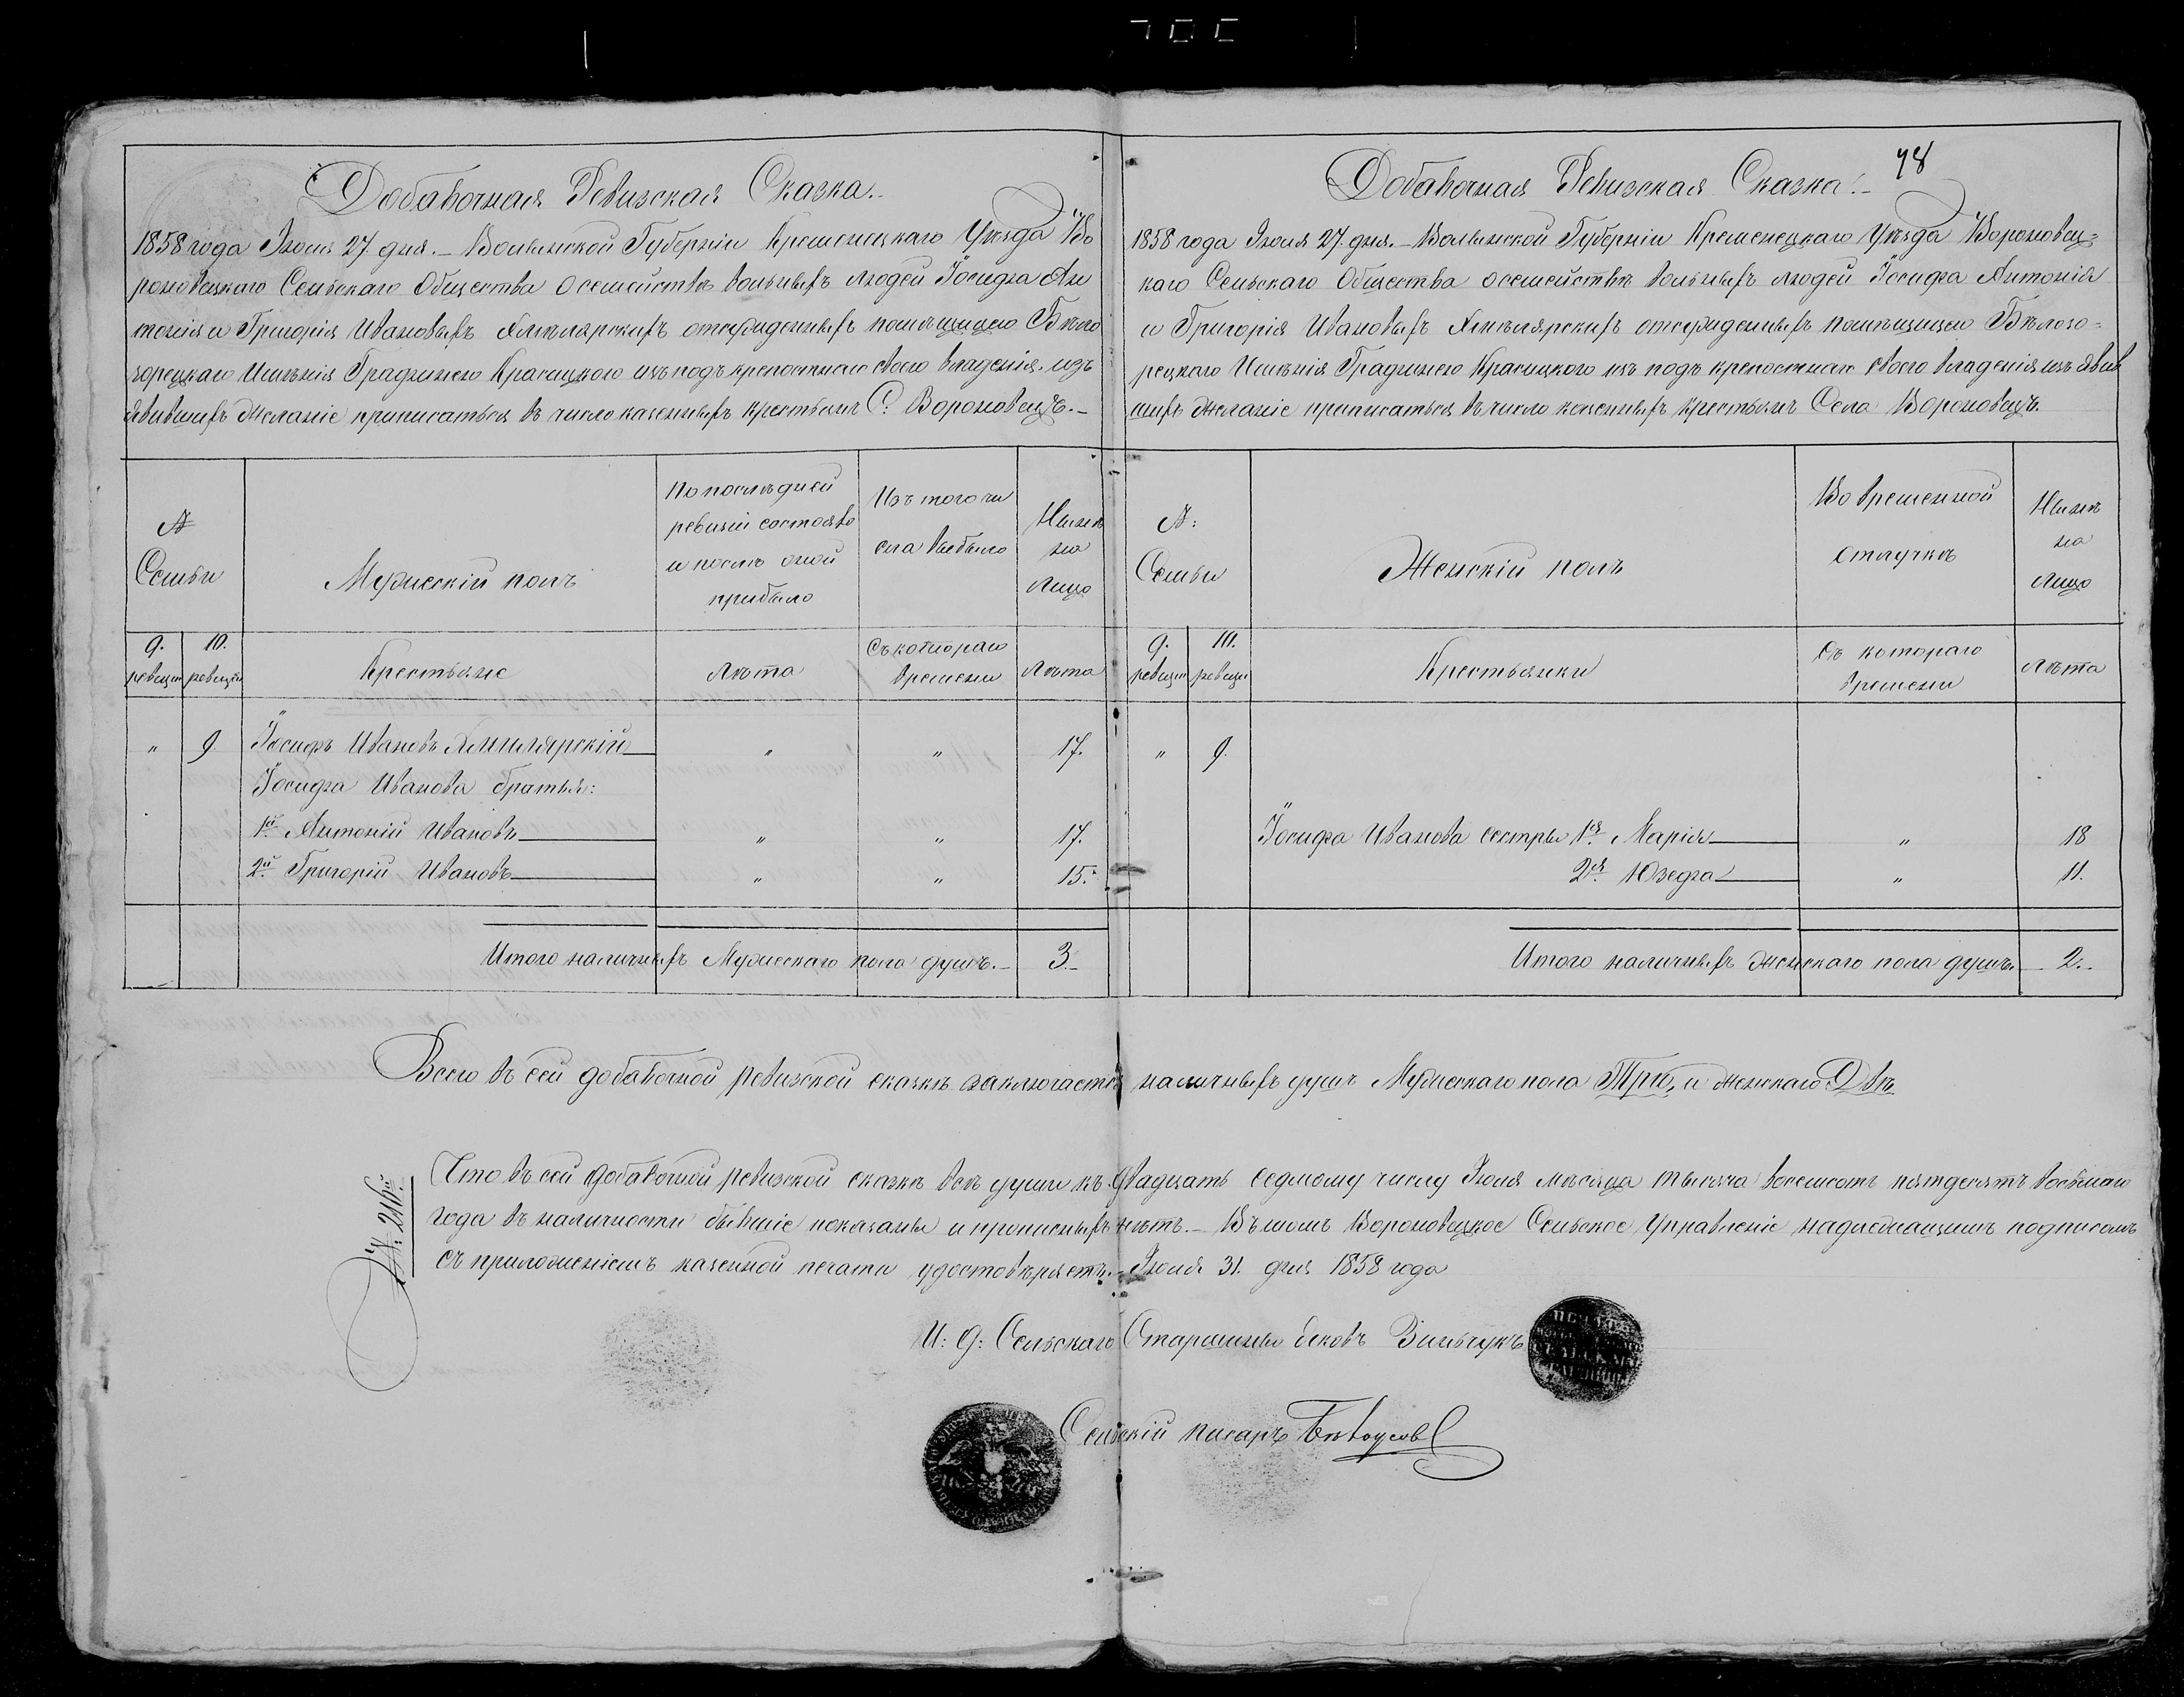 78
Добавочная Ревизская Сказка.
1858 года Июля 27. дня. – Волынской Губерніи Кременецкаго Уѣзда Во
роновецкаго Сельскаго Общества о семействѣ вольныхъ людей Іосифа Ан
тонія и Григорія Ивановыхъ Хмѣлярскихъ отсужденныхъ помѣщицею Бѣло
зорецкаго Имѣнія Графинею Красицкою изъ подъ крепостнаго своего владенія изъ
явившихъ желаніе приписаться въ число казенныхъ крестьянъ С. Вороновецъ. –
№ Семьи
Мужескій полъ
По послѣдней
ревизіи состояло
и послѣ оной
прибыло
Изъ того чи
сла выбыло
Нынѣ
на
лицо
9. ревизіи
10. ревизіи
Крестьяне
Лѣта
Съ котораго
времени
Лѣта
" 9 Іосифъ Ивановъ Хмилярскій " " 17.
Іосифа Иванова братья:
1й Антоній Ивановъ " " 17.
2й Григорій Ивановъ " " 15.
Итого наличныхъ Мужескаго пола душъ. – 3. –
Добавочная Ревизская Сказка. –
1858 года Июля 27. дня. – Волынской Губерніи Кременецкаго Уѣзда Вороновец-
каго Сельскаго Общества о семействѣ вольныхъ людей Іосифа Антонія
и Григорія Ивановыхъ Хмѣлярскихъ отсужденныхъ помѣщицею Бѣлозо-
рецкаго Имѣнія Графинею Красицкою изъ подъ крепостнаго своего владенія изъявив
шихъ желаніе приписаться въ число казенныхъ крестьянъ Села Вороновецъ.
№: Семьи
Женскій полъ
Во временной
отлучкѣ
Нынѣ
на
лицо
9. ревизіи
10. ревизіи
Крестьянки
Съ котораго
времени
Лѣта
" 9.
Іосифа Иванова сестры 1я Марія " 18
2я Юзефа " 11.
Итого наличныхъ женскаго пола душъ. 2. –
Всего въ сей добавочной ревизской сказкѣ заключается наличныхъ душъ Мужескаго пола Три, и женскаго Двѣ
Что въ сей добавочной ревизской сказкѣ всѣ души къ двадцать седмому числу Июля мѣсяца тысяча восемсотъ пятдесятъ восьмаго
года въ наличности бывшіе показаны и прописныхъ нѣтъ. – Въ томъ Вороновецкое Сельское Управленіе надлежащимъ подписомъ
съ приложеніемъ казенной печати удостовѣряетъ. Июля 31. дня 1858 года
И: д: Сельскаго Старшины Зильчукъ
Сельскій писаръ Бѣлоусов